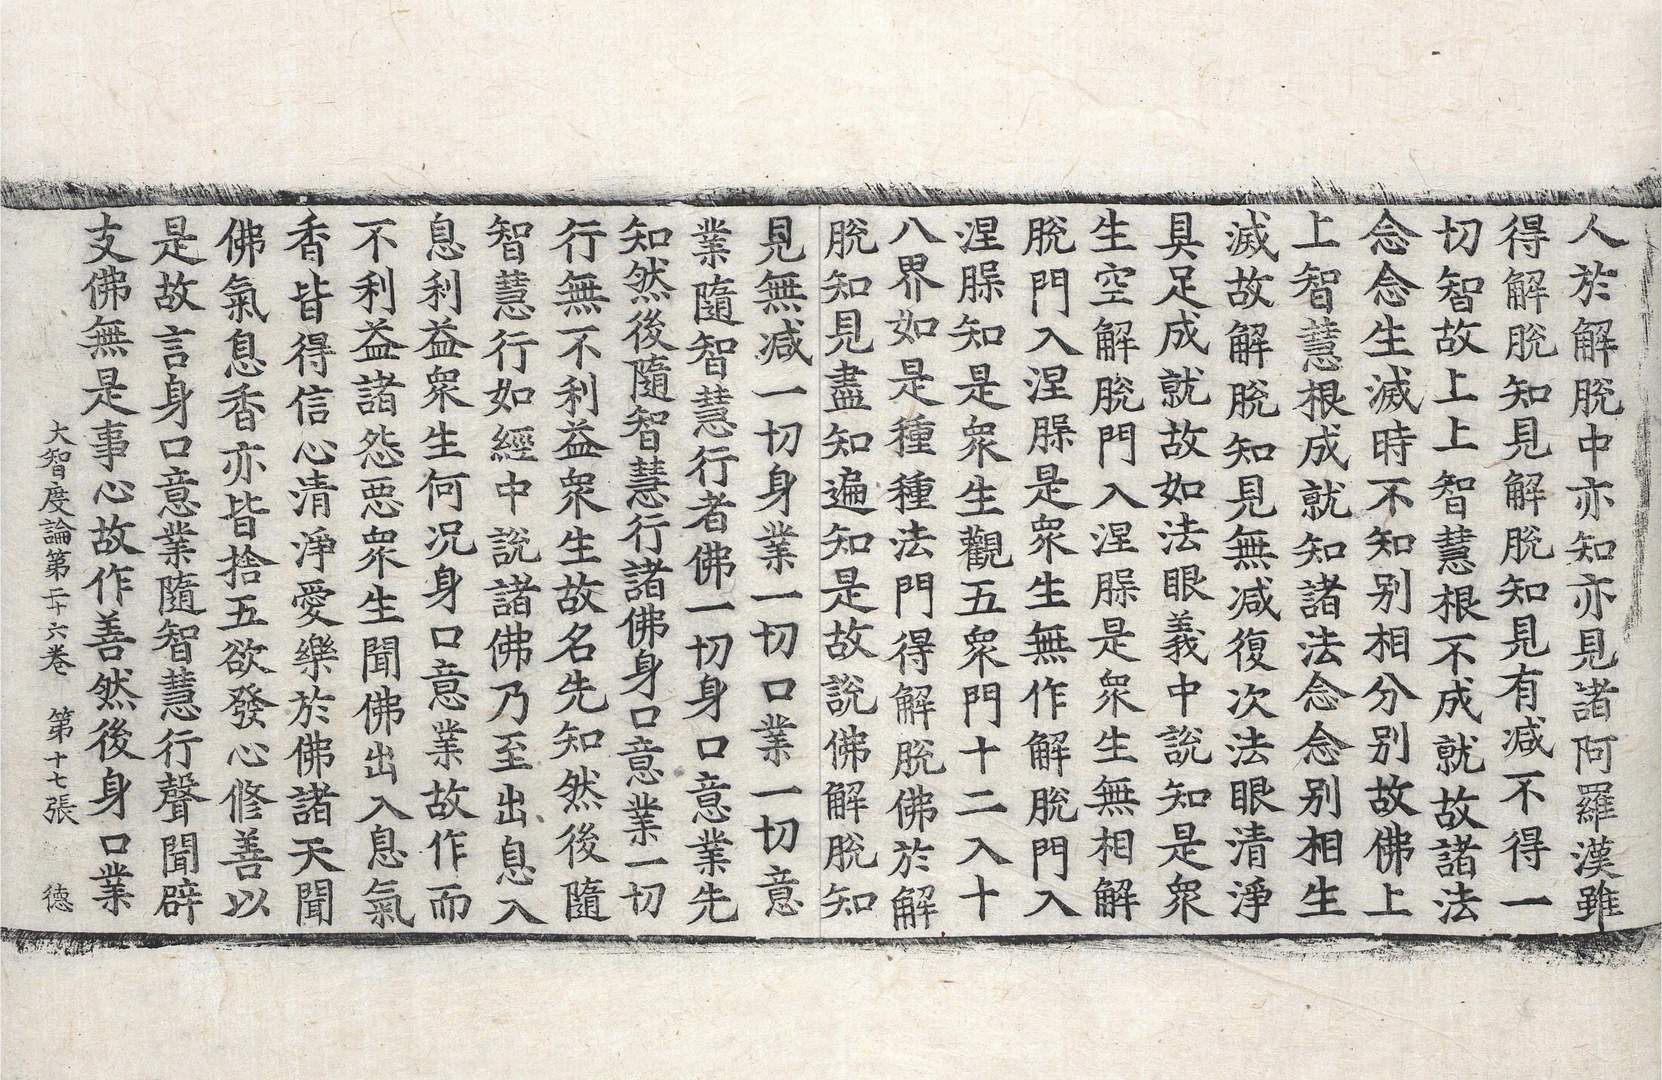 人於解脫中亦知亦見諸阿羅漢雖
得解脫知見解脫知見有减不得一
切智故上上智慧根不成就故諸法
念念生滅時不知別相分別故佛上
上智慧根成就知諸法念念別相生
滅故解脫知見無减復次法眼清淨
具足成就故如法眼義中說知是衆
生空解脫門入涅槃是衆生無相解
脫門入涅槃是衆生無作解脫門入
涅槃知是衆生觀五衆門十二入十
八界如是種種法門得解脫佛於解
脫知見盡知遍知是故說佛解脫知
見無减一切身業一切口業一切意
業隨智慧行者佛一切身口意業先
知然後隨智慧行諸佛身口意業一切
行無不利益衆生故名先知然後隨
智慧行如經中說諸佛乃至出息入
息利益衆生何況身口意業故作而
不利益諸怨惡衆生聞佛出入息氣
香皆得信心清淨愛樂於佛諸天聞
佛氣息香亦皆捨五欲發心修善以
是故言身口意業隨智慧行聲聞辟
支佛無是事心故作善然後身口業
大智度論第二十六卷 第十七張 德